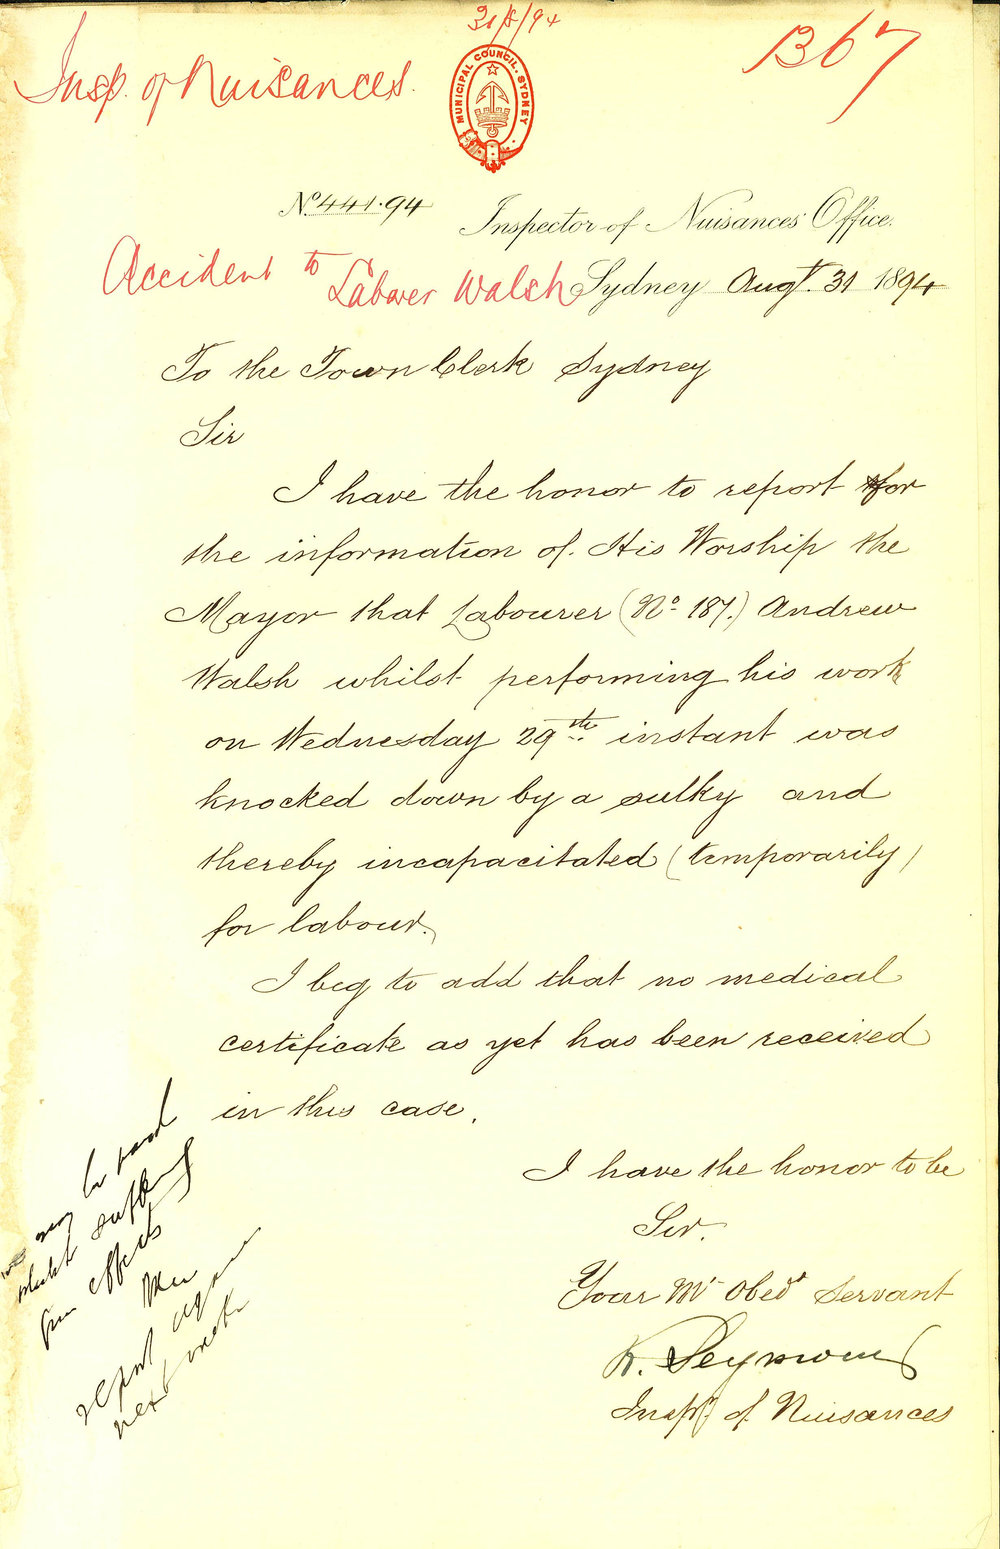 31/8/94
Insp. of Nuisances.
1367
MUNICIPAL COUNCIL. SYDNEY
No. 441.94
Inspector of Nuisances Office.
Accident to Laborer Walsh
Sydney Augt. 31 1894
To the Town Clerk Sydney
Sir
I have the honor to report for
the information of His Worship the
Mayor that Labourer (No. 187.) Andrew
Walsh whilst performing his work
on Wednesday 29th instant was
knocked down by a sulky and
thereby incapacitated (temporarily)
for labour.
I beg to add that no medical
certificate as yet has been received
in this case.
I have the honor to be
Sir.
Your Mt Obedt Servant
R. Seymour
Inspr. of Nuisances
may be paid
whilst suffering
from effects
report again
next week